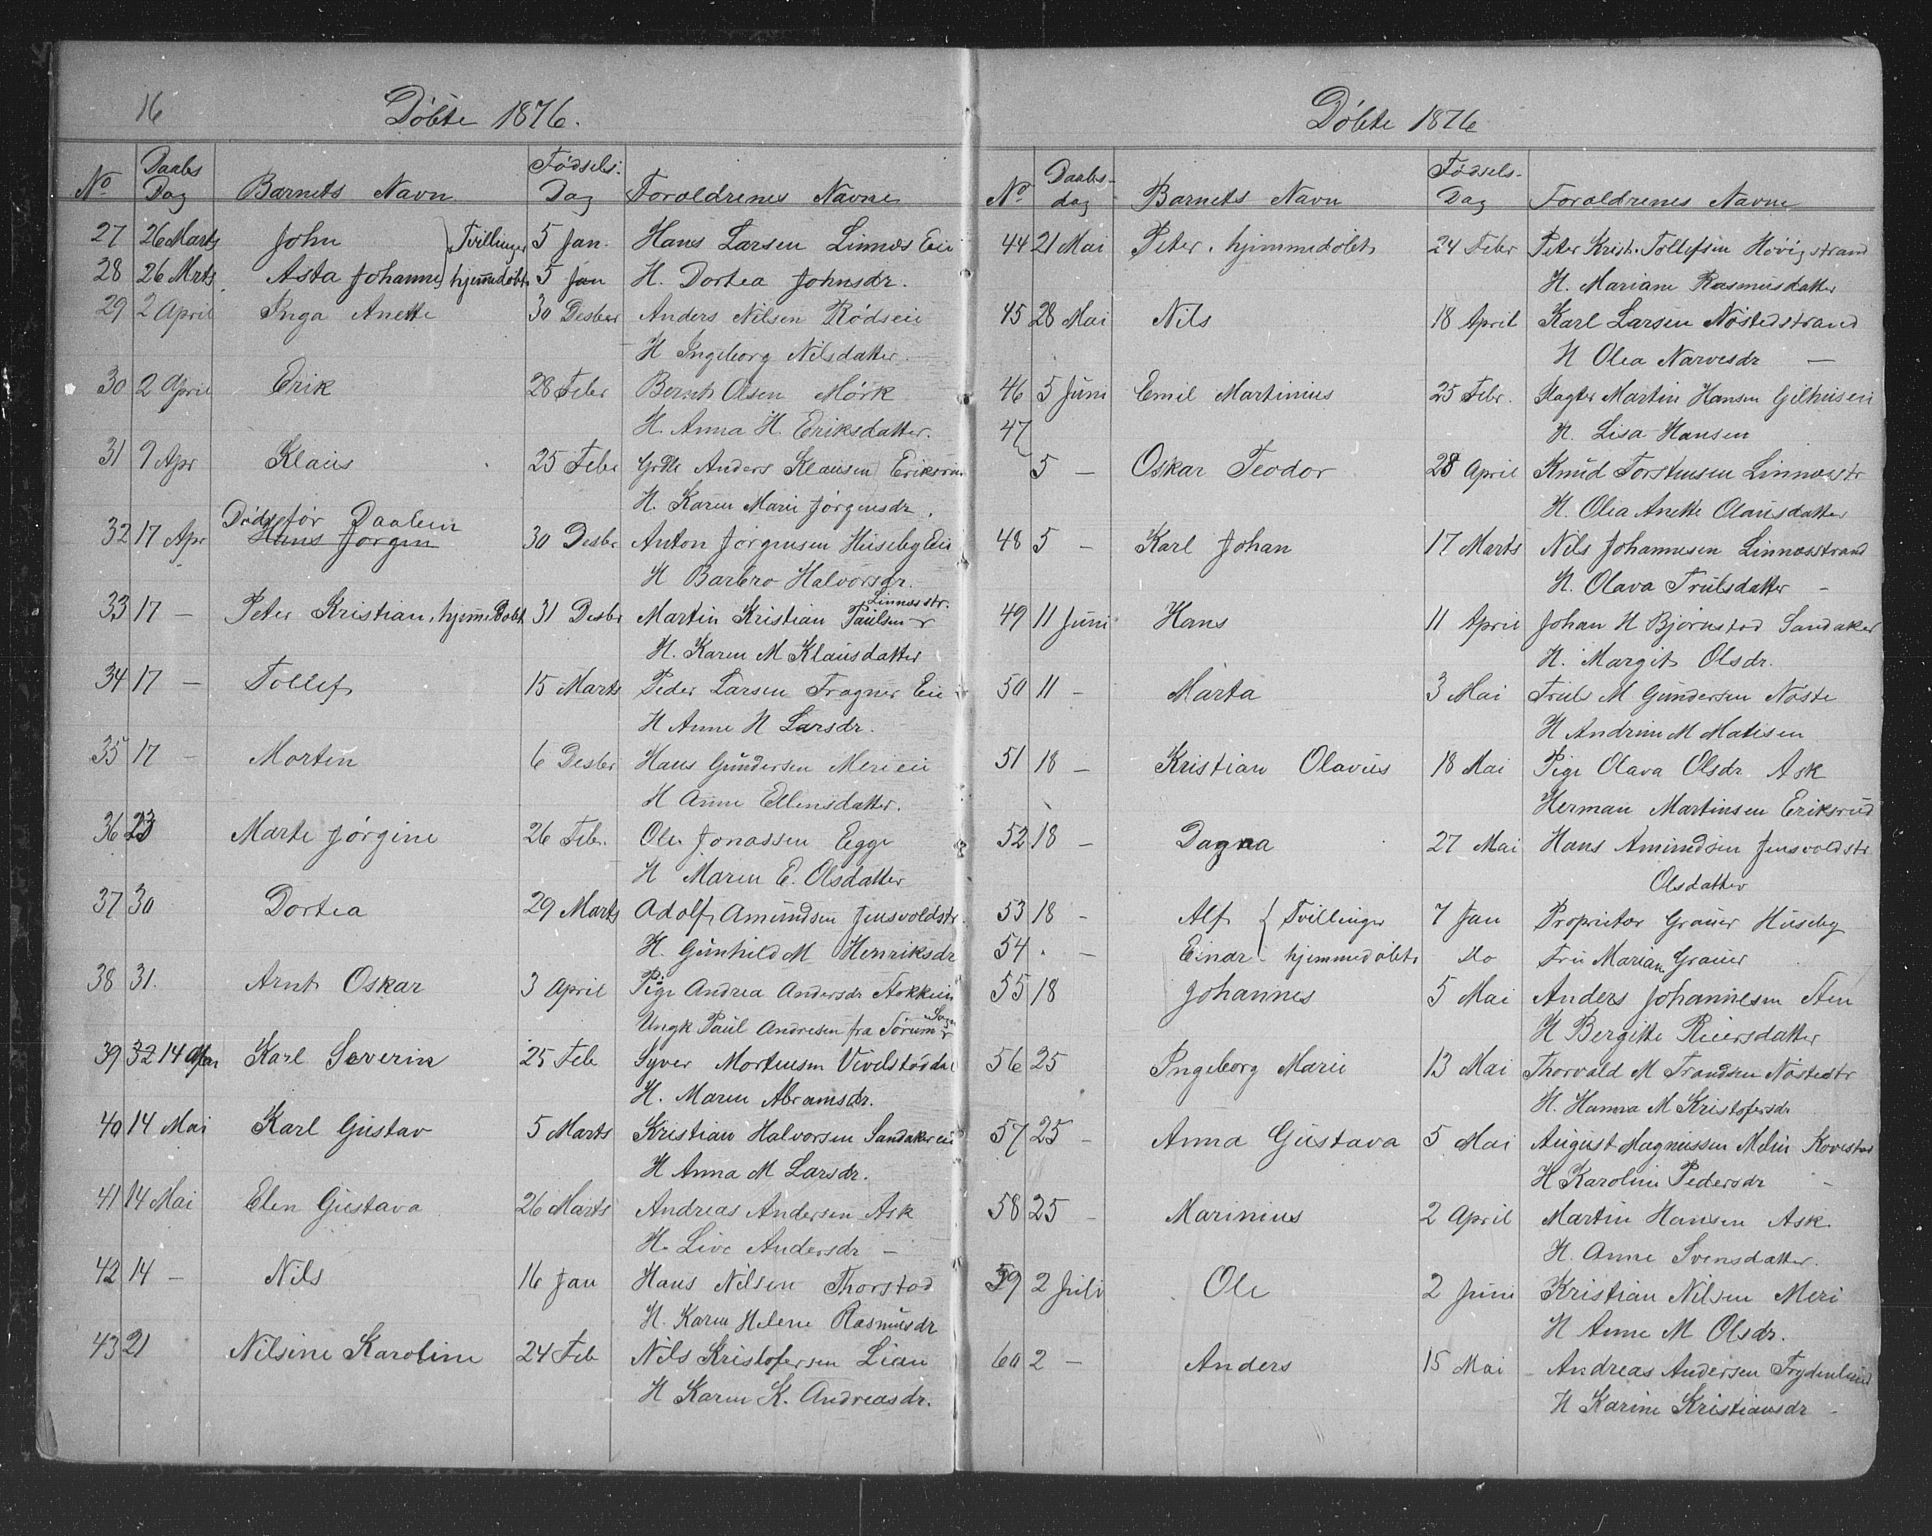 16
Döbte 1876.
No Daabs Dag Barnets Navn Fødsels. Dag Foræeldrenes Navne
27 26 Marts John } Tvillinger 5 Jan. Hans Larsen Linnes Eie
28 26 Mrts Asta Johanne } hjemmedøbt 5 Jan H. Dortea Johnsdr.
29 2 April Inga Anette 30 Desber Anders Nilsen Rødseie
H Ingeborg Nilsdatter.
30 2 April Erik 28 Feber Bernt Olsen Mørk
H. Anna H. Eriksdatter.
31 9 Apr Klaus 25 Febr Grdbr Anders Klausen Eriksrud
H. Karen Marie Jørgensdr.
Døde før Daaben
32 17 Apr Hans Jørgen 30 Desbr Anton Jørgensen Huseby Eie
H Barbro Halvorsdr.
Linnesstr.
33 17 — Peter Kristian, hjemmedøbt 31 Desbr Martin Kristian Paulsen
H. Karen M Klausdatter
34 17 — Tollef 15 Marts Peder Larsen Tragner Eie
H Anne H Larsdr.
35 17 — Morten 6 Desbr Hans Gundersen Meri eie
H Anne Ellensdatter.
36 23 Marte Jørgine 26 Feb. Ole Jonassen Egge
H Maren E. Olsdatter
37 30 Dortea 29 Marts Adolf Amundsen Jensvoldstr
H. Gunhild M Henriksdr
38 31. Arnt Oskar 3 April Pige Andrea Andersdr Stokkeie
Ungk Paul Andresen fra Sørum
39 32 14 Karl Severin 25 Feb Syver Mortensen Vivelstaddal
H. Maren Abramsdr.
40 14 Mai Karl Gustav 5 Marts Kristian Halvorsen Sandaker eie
H Anna M Larsdr.
41 14 Mai Elen Gustava 26 Marts Andreas Andersen Ask
H. Live Andersdr —
42 14 — Nils 16 Jan Hans Nilsen Thorstad
H. Karen Helene Rasmusdr
43 21 Nilsine Karoline 24 Feb Nils Kristofersen Lian
H Karen K. Andreasdr.
Döbte 1876
No Daabs- dag Barnets Navn Fødsels- Dag Foræeldrenes Navne
44 21 Mai Peter. hjemmedøbt 24 Feber Peter Kristi. Tollefsen Høvigstrand
H. Mariane Rasmusdatter
45 28 Mai Nils 18 April Karl Larsen Nøstedstrand
H Olea Narvesdr —
46 5 Juni Emil Martinius 25 Febr. Slagter Martin Hansen Gilhus eie
47 H. Lisa Hansen
5 — Oskar Teodor 28 April Knud Torstensen Linnesstr
H. Olea Anette Olausdatter
48 5 — Karl Johan 17 Marts Nils Johannesen Linnesstrand
H. Olava Trulsdatter —
49 11 Juni Hans 11 April Johan H Bjørnstad Sandaker
H. Margit Olsdr.
50 11 — Marta 3 Mai Truls M Gundersen Nøste
H Andrine M Matisen
51 18 — Kristian Olavus 18 Mai Pige Olava Olsdr Ask
Herman Martinsen Eriksrud
52 18 — Dagna 27 Mai Hans Amundsen Jensvoldstr
Olsdatter
53 18 — Alf { Tvillinger 7 Jan Proprietær Grauer Huseby
54 . — Einar hjemmedøbt Do Fru Marian Grauer
55 18 Johannes 5 Mai Anders Johannesen Sten
H Bergitte Reiersdatter
56 25 Ingeborg Marie 13 Mai Thorvald M Trondsen Nøstedstr
H. Hanna M Kristofersdr
57 25 — Anna Gustava 5 Mai August Magnussen Melin
H Karoline Pedersdr —
58 25 — Marinius 2 April Martin Hansen Ask
H. Anne Svensdatter.
59 2 Juli Ole 2 Juni Kristian Nilsen Meri
H Anne M Olsdr.
60 2 — Anders 15 Mai Andreas Andersen Frydenlund
H Karine Kristiansdr —